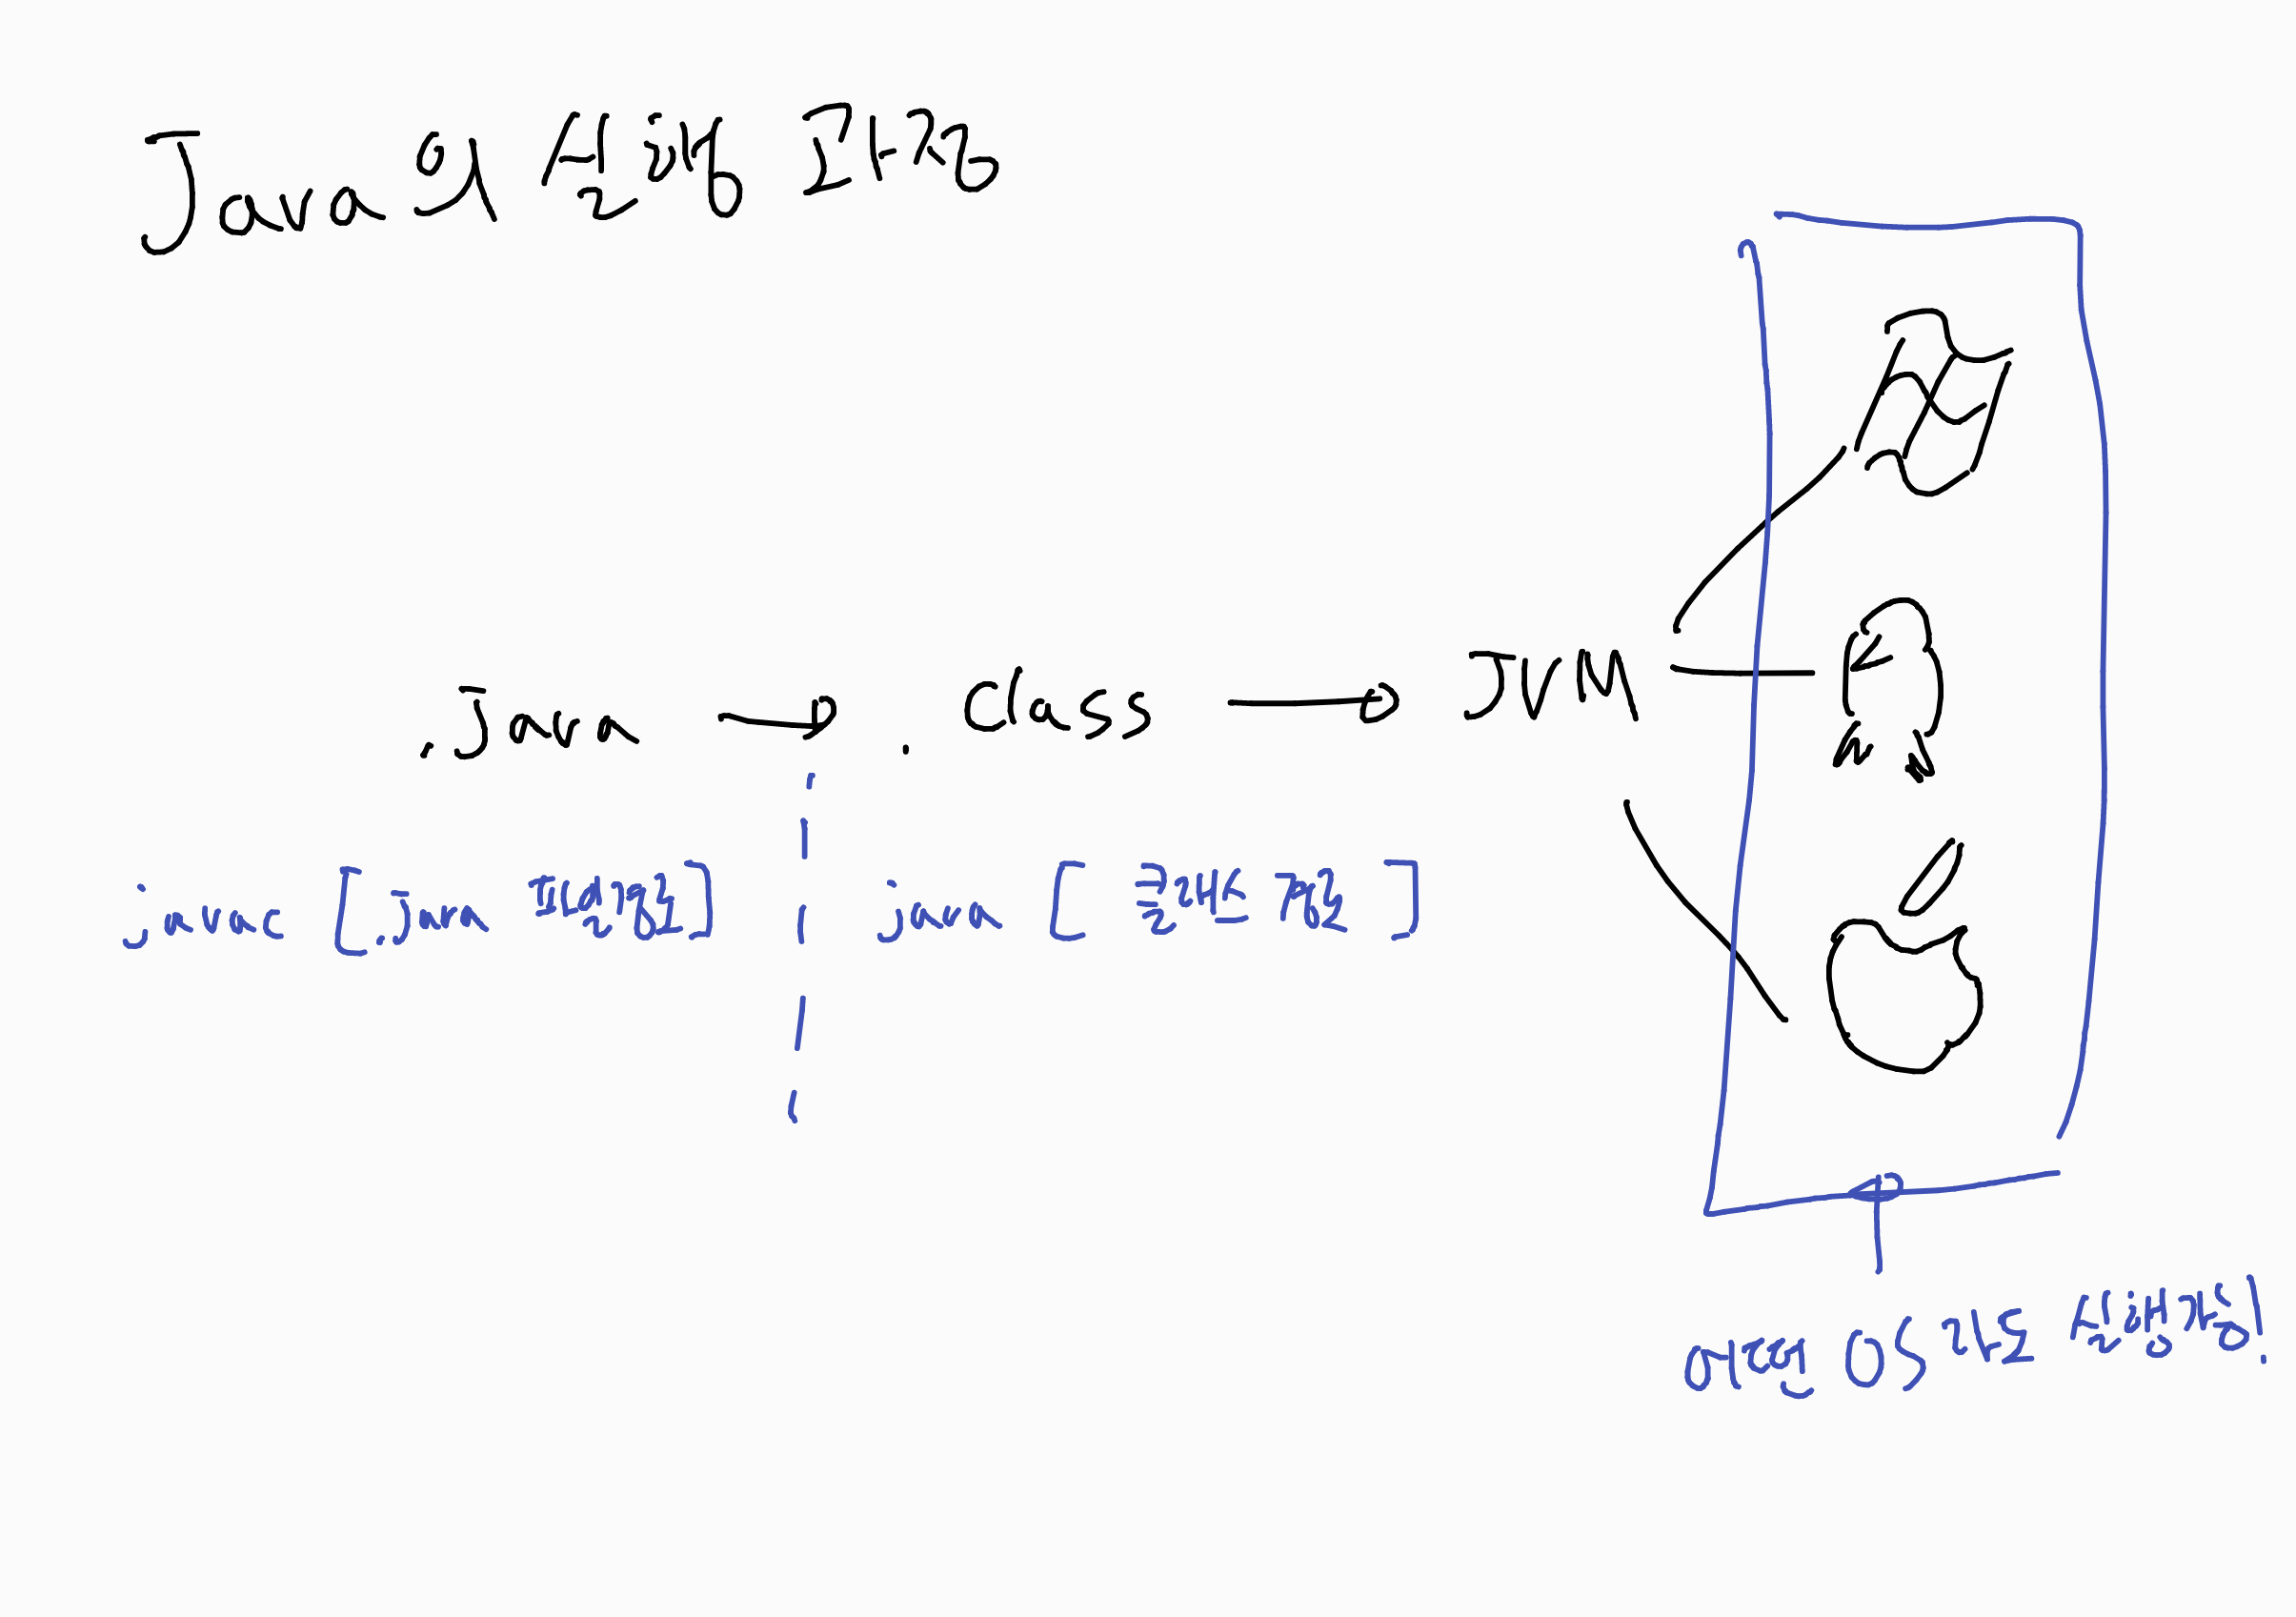 Java의 실행 과정
.java → .class → JVM
javac [.java 파일경로] java [클래스 경로]
어떤 OS라도 실행가능!